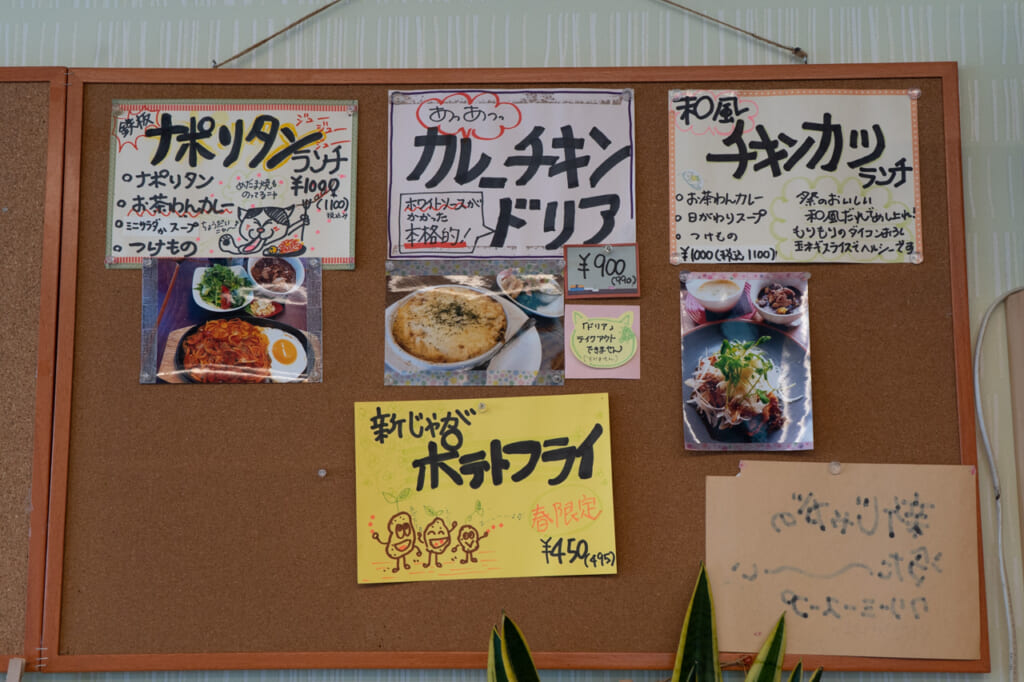 鉄板
ジュージュー
ナポリタン
ランチ
¥1000
(1100)
税込み
ナポリタン
お茶わんカレー
ミニサラダかスープ
つけもの
めだま焼も
のってるニャ
ちょうだいニャ〜
あっあつっ
カレーチキン
ドリア
ホワイトソースが
かかった
本格的!
¥900
(990)
「ドリア」
テイクアウト
できません
和風
チキンカツ
ランチ
お茶わんカレー
日がわりスープ
つけもの
¥1000(税込1100)
祭のおいしい
和風だれでめし上れ!
もりもりのダイコンおろし
玉ネギスライスでヘルシーです
新じゃが
ポテトフライ
春限定
¥450(495)
新じゃがの
クリーミースープ